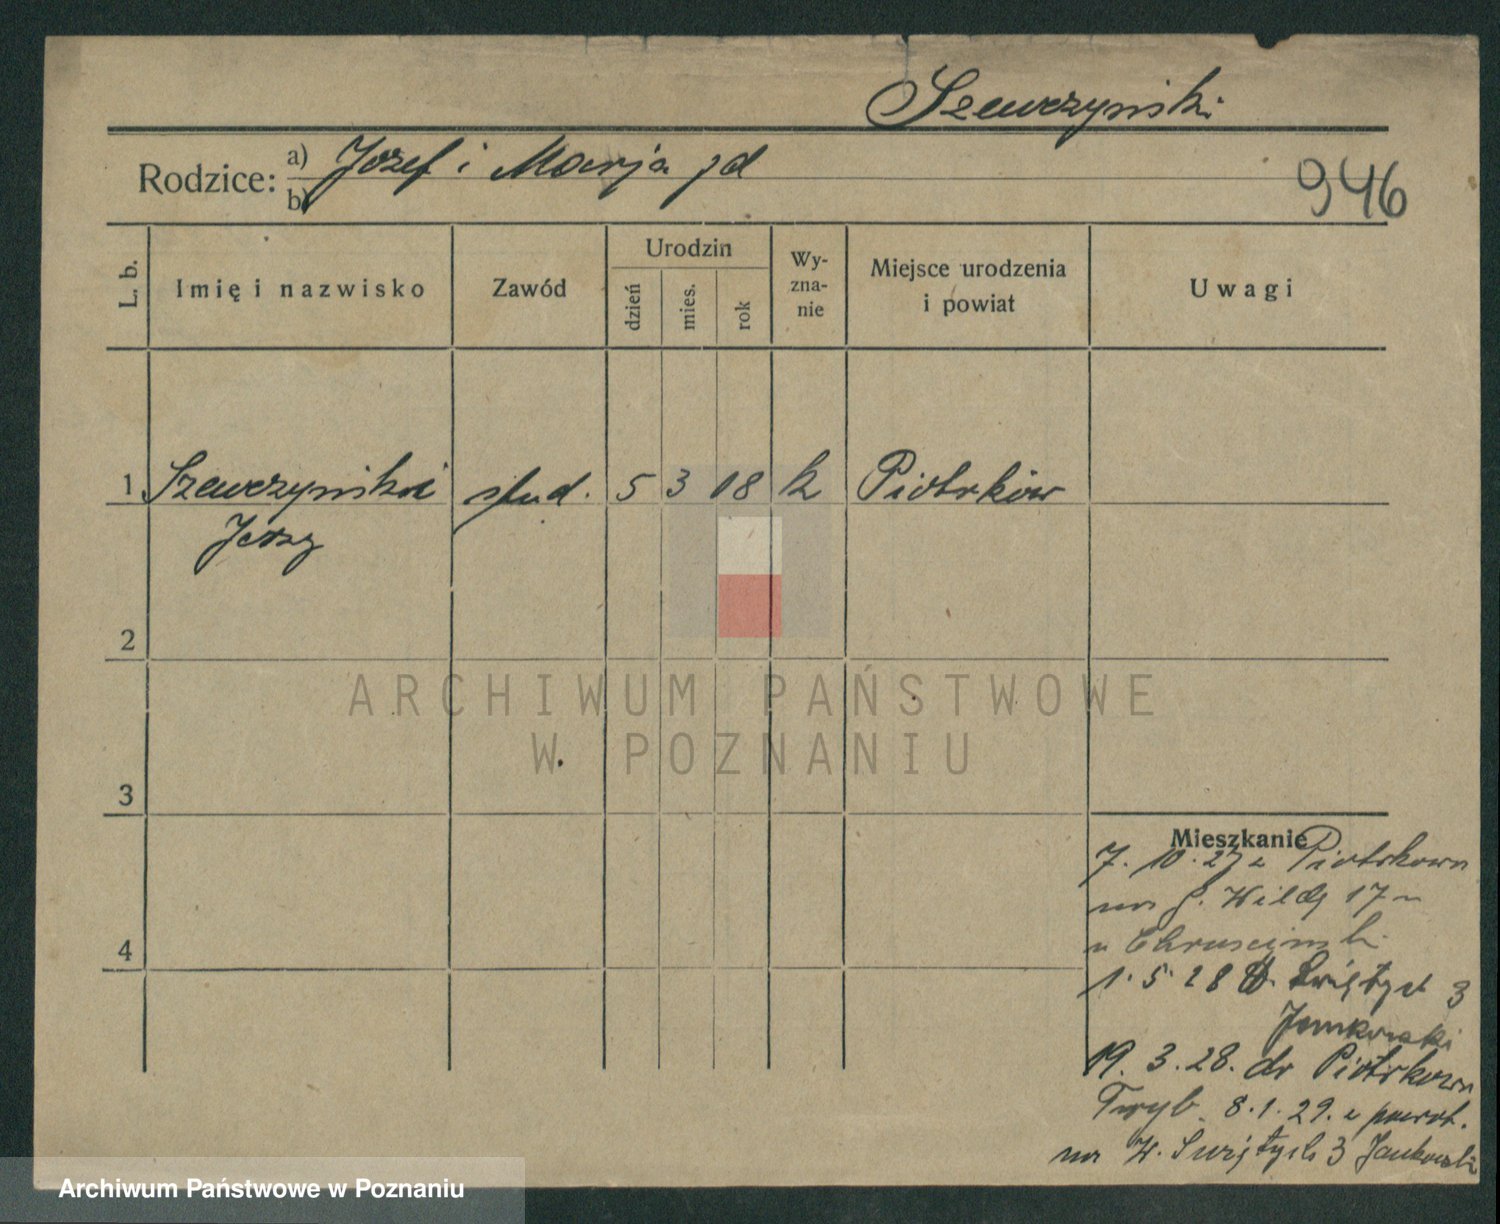 Szewczyński
Rodzice: a) Józef i Marja jd
b)
946
L. b.
Imię i nazwisko
Zawód
Urodzin
dzień
mies.
rok
Wy-
zna-
nie
Miejsce urodzenia
i powiat
Uwagi
1 Szewczyński stud. 5 3 18 k Piotrków
Jerzy
2
3
4
Mieszkanie
7. 10. 27 z Piotrkowa
na G. Wildę 17
u
1. 5. 28 W. Świętych 3
Jankowski
19. 3. 28. do Piotrkowa
Tryb. 8. 1. 29. z powrot.
na W. Świętych 3 Jankowski
ARCHIWUM PAŃSTWOWE
W POZNANIU
Archiwum Państwowe w Poznaniu